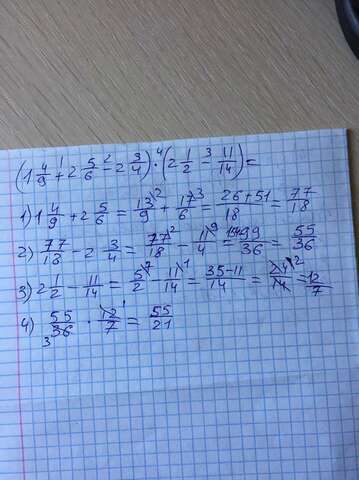 (1 4/9 +¹ 2 5/6 -² 2 3/4) ·⁴ (2 1/2 -³ 11/14) =
1) 1 4/9 + 2 5/6 = 13/9 \2 + 17/6 \3 = 26+51/18 = 77/18
2) 77/18 - 2 3/4 = 77/18 \2 - 11/4 \9 = 154-99/36 = 55/36
3) 2 1/2 - 11/14 = 5/2 \7 - 11/14 \1 = 35-11/14 = 24/14 = 12/7
4) 55/36 · 12/7 = 55/21